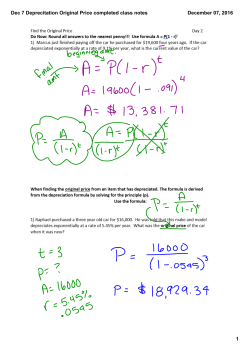 Dec 7 Deprecitation Original Price completed class notes
December 07, 2016
Find the Original Price
Day 2
Do Now: Round all answers to the nearest penny!!! Use formula A = P(1 - r)ᵗ
1) Marcus just finished paying off the car he purchased for $19,600 four years ago. If the car
depreciated exponentially at a rate of 9.1% per year, what is the current value of the car?
beginning amt.
final amt
A = P(1-r)ᵗ
A = 19600(1 - .091)⁴
A = $ 13,381.71
P = A/(1-r)ᵗ
A/(1-r)ᵗ = P(1-r)ᵗ/(1-r)ᵗ
When finding the original price from an item that has depreciated. The formula is derived
from the depreciation formula by solving for the principle (p).
Use the formula:
P = A/(1-r)ᵗ
1) Raphael purchased a three year old car for $16,000. He was told that this make and model
depreciates exponentially at a rate of 5.45% per year. What was the original price of the car
when it was new?
t = 3
p = ?
A = 16000
r = 5.45%
.0545
P = 16000/(1-.0545)³
P = $ 18,929.34
1